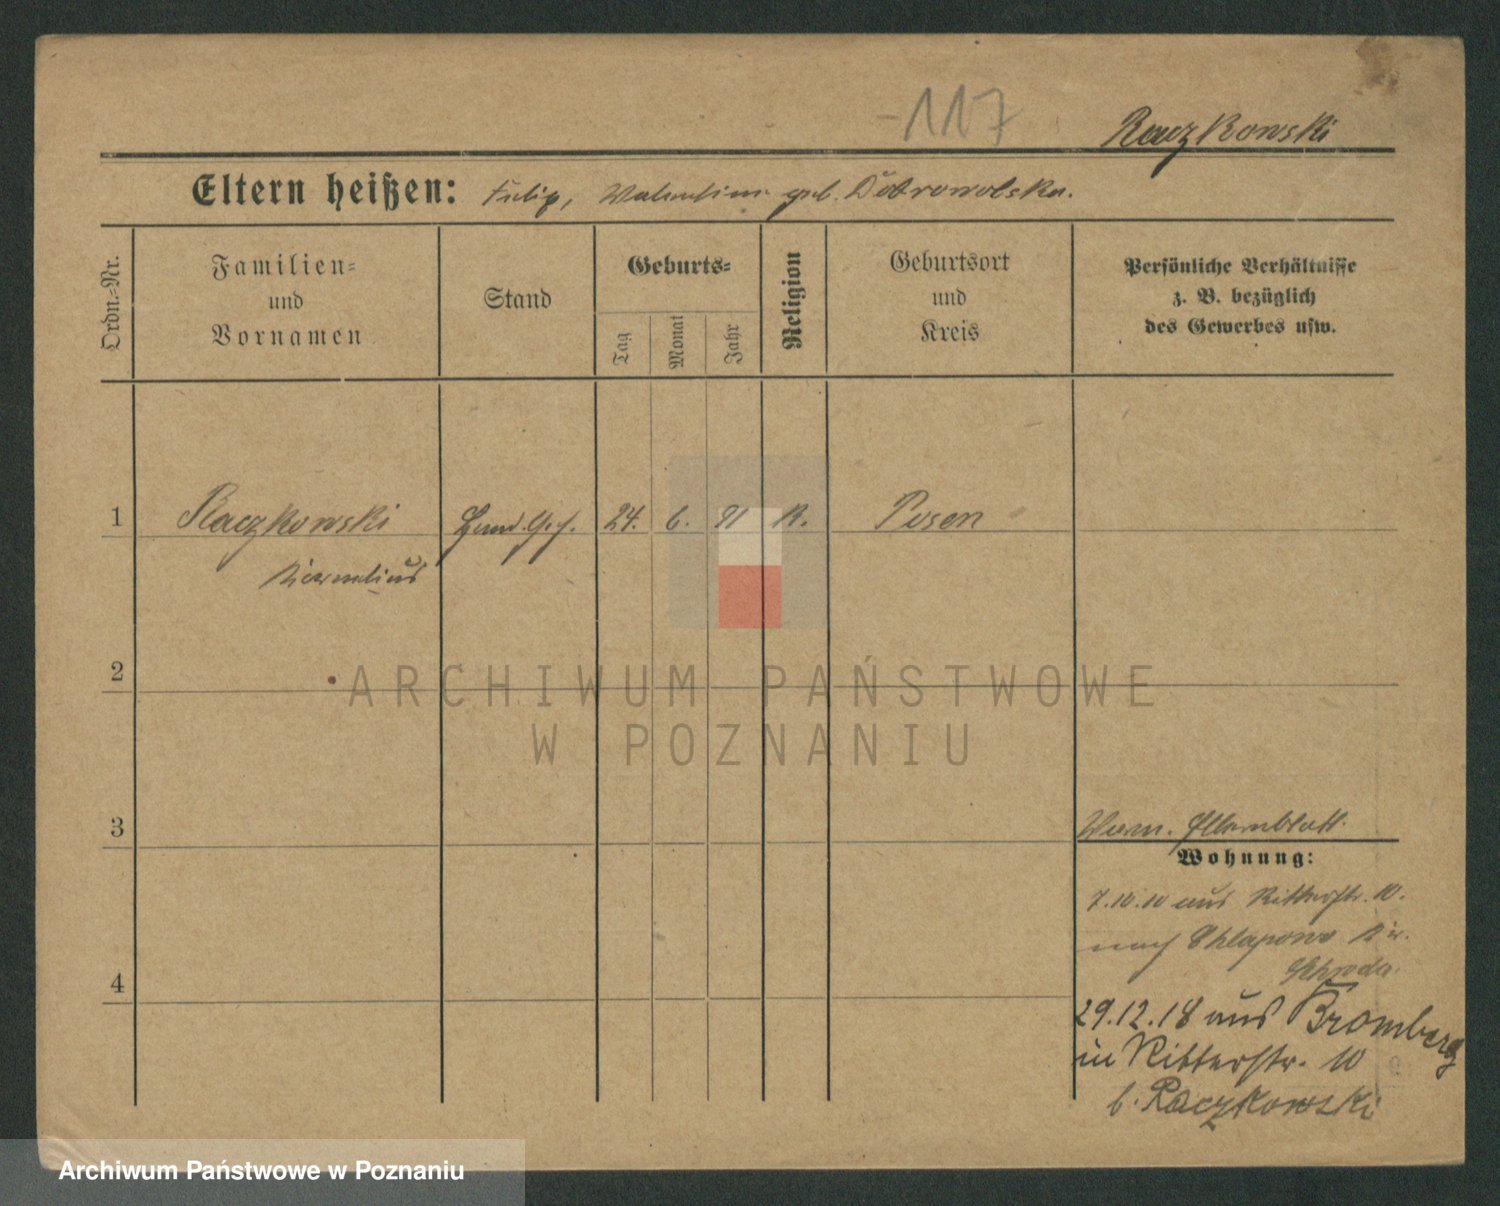 -117
Raczkowski
Eltern heißen: Filip, Valentin geb. Dobrowolska.
Ordn.-Nr.
Familien- und Vornamen
Stand
Geburts-
Tag
Monat
Jahr
Religion
Geburtsort und Kreis
Persönliche Verhältnisse
z. B. bezüglich
des Gewerbes usw.
1 Raczkowski 24. 6. 91 K. Posen
Kornelius
2
ARCHIWUM PAŃSTWOWE
W POZNANIU
3
Elternblatt.
Wohnung:
7.10.10 aus Ritterstr. 10.
nach Chlapowo Kr.
Schroda.
4
29.12.18 aus Bromberg
in Ritterstr. 10
b. Raczkowski
Archiwum Państwowe w Poznaniu